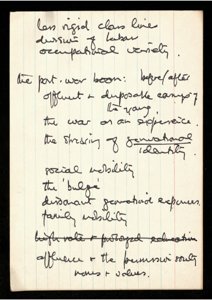 less rigid class lines
division of labor
occupational variety.
the post-war boom: before/after
affluent + disposable earnings of
the young.
the war as an experience.
the stressing of generational
identity.
social mobility
the 'bulge'
dissonant generational experiences
family mobility
high rate + prolonged education
affluence + the permissive society
norms + values.